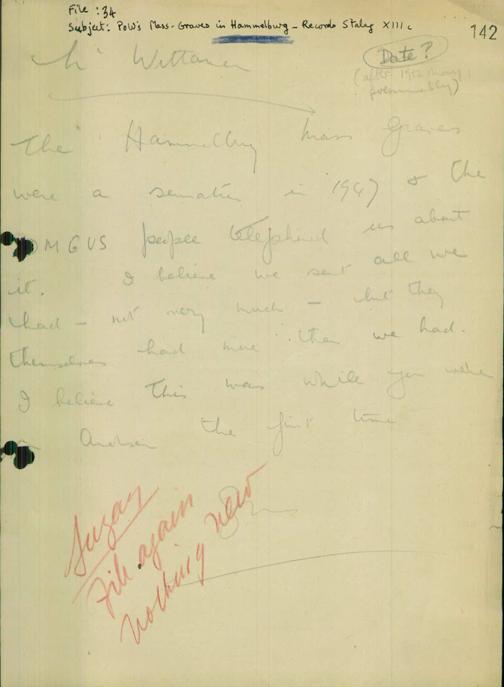 File: 34
Subject: PoW's Mass-Graves in Hammelburg - Records Stalag XIII c
142
Date?
(after 1952 may,
presumably)
The Hammelburg Mass Graves
were a sensation in 1947 & the
OMGUS people telephoned us about
it. I believe we sent all we
had - not very much - but they
themselves had more than we had.
I believe this was while you were
in Arolsen the first time
Suzan
File again
nothing new